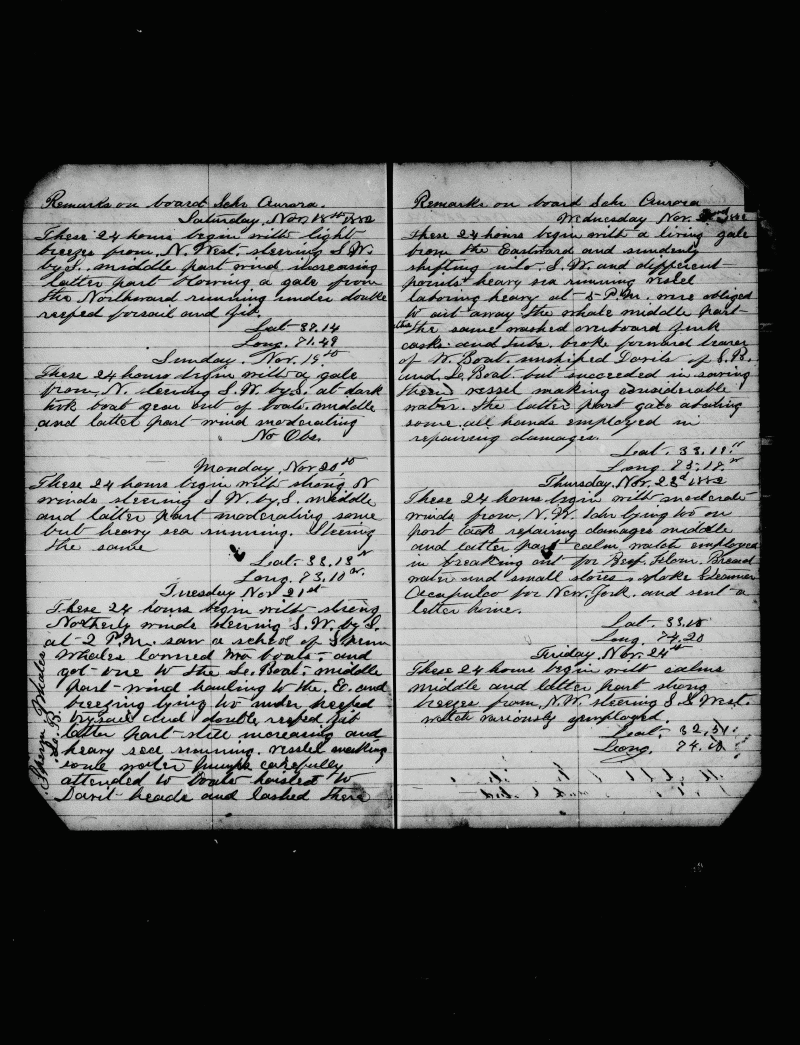 Remarks on board Schr Aurora.
Saturday, Nov 18th 1882
These 24 hours begin with light
breezes from N. West. steering S.W.
by S. middle part wind increasing
latter part blowing a gale from
the Northward running under double
reefed forsail and jib.
Lat 38.14
Long. 71.49
Sunday. Nov. 19th
These 24 hours begin with a gale
from N. steering S.W. by S. at dark
tirk boat gear out of boats. middle
and latter part wind moderating
No Obs.
Monday, Nov 20th
These 24 hours begin with strong N
winds steering S.W. by S. middle
and latter part moderating some
but heavy sea running. Steering
the same
Lat. 33.13
Long. 73.10
Tuesday Nov 21st
These 24 hours begin with strong
Notherly winds steering S.W. by S.
at 2 P.M. saw a school of Sperm
Whales lowred two boats, and
got one to the Le. Boat, middle
part wind hauling to the E. and
breezing lying to under reefed
trysail and double reefed jib
latter part still increasing and
heavy sea running. vessel making
some water pumps carefully
attended to boats hoisted to
Davit heads and lashed there
Sperm Whales
Remarks on board Schr Aurora
Wednesday Nov.
These 24 hours begin with a living gale
from the Eastward and sundenly
shifting into S.W. and different
points heavy sea running vessel
laboring heavy at 5 P.M. were obliged
to cut away the whale middle part
the same washed overboard
casks and tubs. broke forward bearer
of W. Boat. unshiped Davits of S.B.
and Le. Boat but succeeded in saving
them vessel making considerable
water. the latter part gale abating
some. all hands employed in
repairing damages.
Lat. 33.18
Long. 73.18
Thursday, Nov. 23d 1882
These 24 hours begin with moderate
winds from N.W. lying too on
port tack repairing damages middle
and latter part calm watch employed
in breaking out for Beef. Flour. Bread
water and small stores. spoke Steamer
Accapulco for New York. and sent a
letter home.
Lat. 33.18
Long. 74.20
Friday Nov. 24th
These 24 hours begin with calms
middle and latter part strong
breezes from N.W. steering S.S. West.
watch variously employed.
Lat. 32.51
Long. 74.10